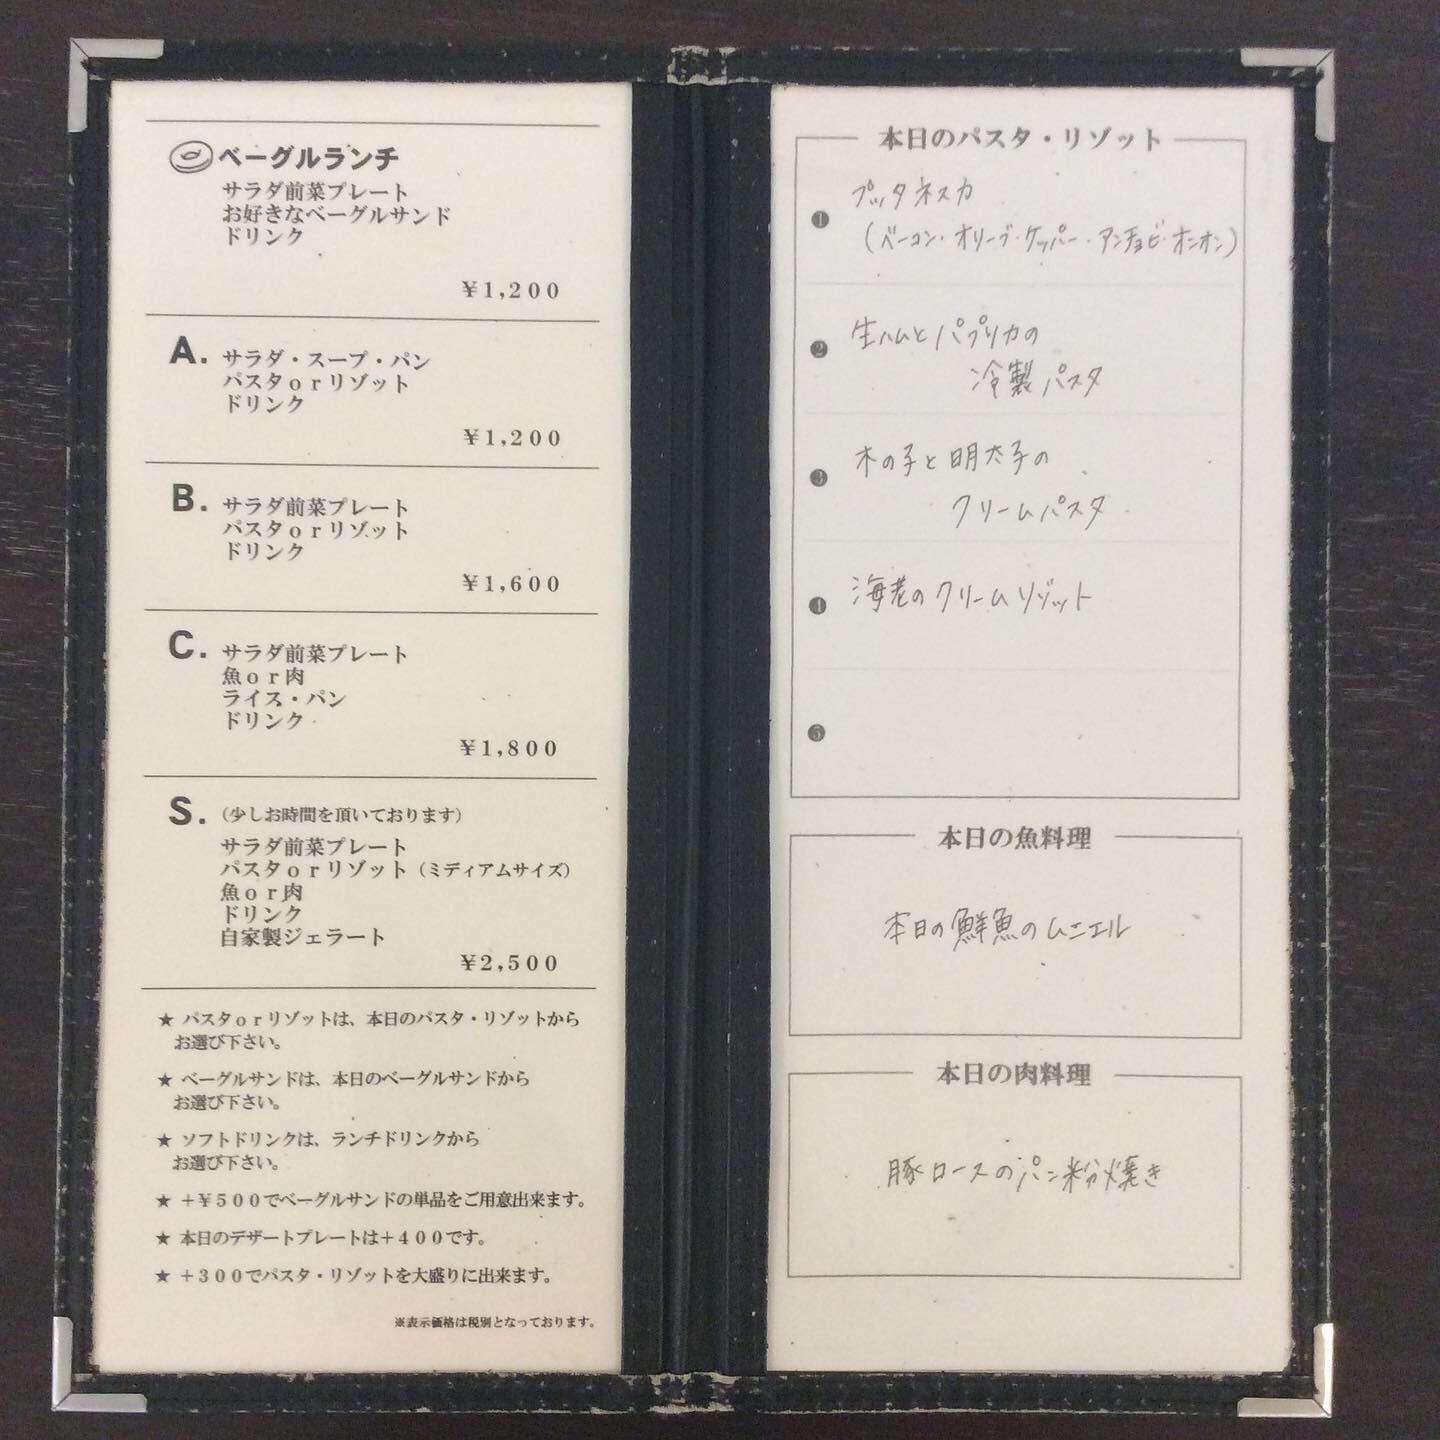 ベーグルランチ
サラダ前菜プレート
お好きなベーグルサンド
ドリンク
¥1,200
A. サラダ・スープ・パン
パスタorリゾット
ドリンク
¥1,200
B. サラダ前菜プレート
パスタorリゾット
ドリンク
¥1,600
C. サラダ前菜プレート
魚or肉
ライス・パン
ドリンク
¥1,800
S. (少しお時間を頂いております)
サラダ前菜プレート
パスタorリゾット(ミディアムサイズ)
魚or肉
ドリンク
自家製ジェラート
¥2,500
★ パスタorリゾットは、本日のパスタ・リゾットから
お選び下さい。
★ ベーグルサンドは、本日のベーグルサンドから
お選び下さい。
★ ソフトドリンクは、ランチドリンクから
お選び下さい。
★ +¥500でベーグルサンドの単品をご用意出来ます。
★ 本日のデザートプレートは+400です。
★ +300でパスタ・リゾットを大盛りに出来ます。
※表示価格は税別となっております。
本日のパスタ・リゾット
❶ プッタネスカ
(ベーコン・オリーブ・ケッパー・アンチョビ・オニオン)
❷ 生ハムとパプリカの
冷製パスタ
❸ 木の子と明太子の
クリームパスタ
❹ 海老のクリームリゾット
❺
本日の魚料理
本日の鮮魚のムニエル
本日の肉料理
豚ロースのパン粉焼き